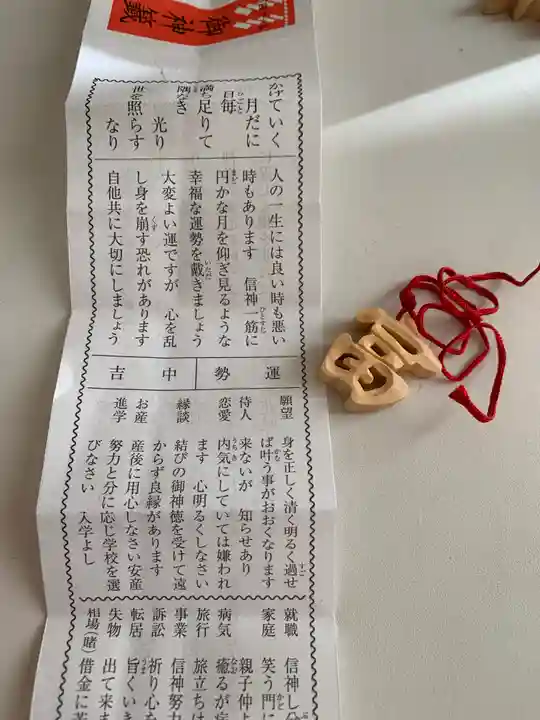 御神籤
かけていく
月だに
日毎
満ち足りて
隈なき
光り
世を照らす
なり
人の一生には良い時も悪い
時もあります 信神一筋に
円かな月を仰ぎ見るような
幸福な運勢を戴きましょう
大変よい運ですが 心を乱
し身を崩す恐れがあります
自他共に大切にしましょう
運勢 中吉
願望 身を正しく清く明るく過せ
ば叶う事がおおくなります
待人 来ないが 知らせあり
恋愛 内気にしていては嫌われ
ます 心明るくしなさい
縁談 結びの御神徳を受けて遠
からず良縁があります
お産 産後に用心しなさい安産
進学 努力と分に応じ学校を選
びなさい 入学よし
就職 信神し分
家庭 笑う門に
親子仲よ
病気 癒るが病
旅行 旅立ちは
事業 信神努力
訴訟 祈り心を
転居 旨くいき
失物 出て来ま
相場(賭) 借金に苦